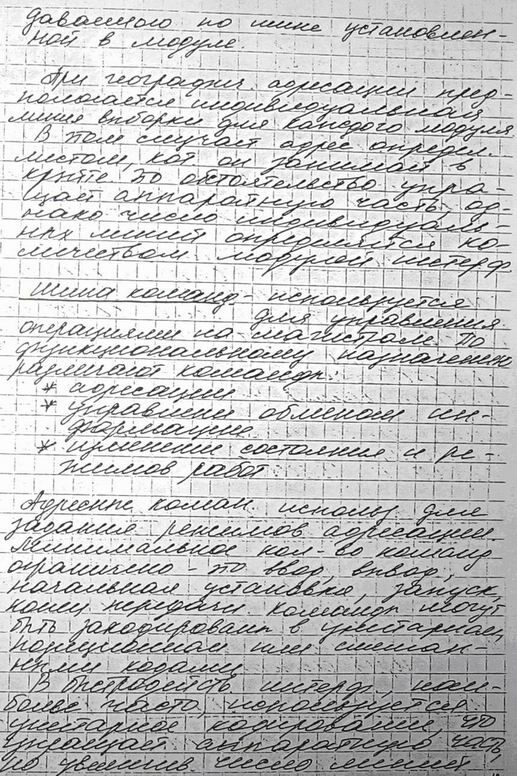 даваемого по шине установлен-
ной в модуле.
При географич. адресации пред-
полагается индивидуальная
линия выборки для каждого модуля
В этом случает адрес определ.
местом, кот. он занимает в
крейте это обстоятельство упра-
щает аппаратную часть, од-
нако число индивидуаль-
ных линий определяется ко-
личеством модулей интерф.
Шина команд - используется
для управления
операциями на магистрали. По
функциональному назначению
различают команды:
* адресации
* управлении обменом ин-
формацие
* изменение состояния и ре-
жимов работ
Адресные коман. использ. для
задания режимов адресации.
Минимальное кол-во команд
ограничено - это ввод, вывод,
начальная установка, запуск,
конец передачи. Команды могут
быть закодированы в унитарном,
позиционном или смешан-
ными кодами
В быстродейств интерф., наи-
более часто, используется
унитарное кодирование, что
упращает аппаратную часть
но увеличив. число линий